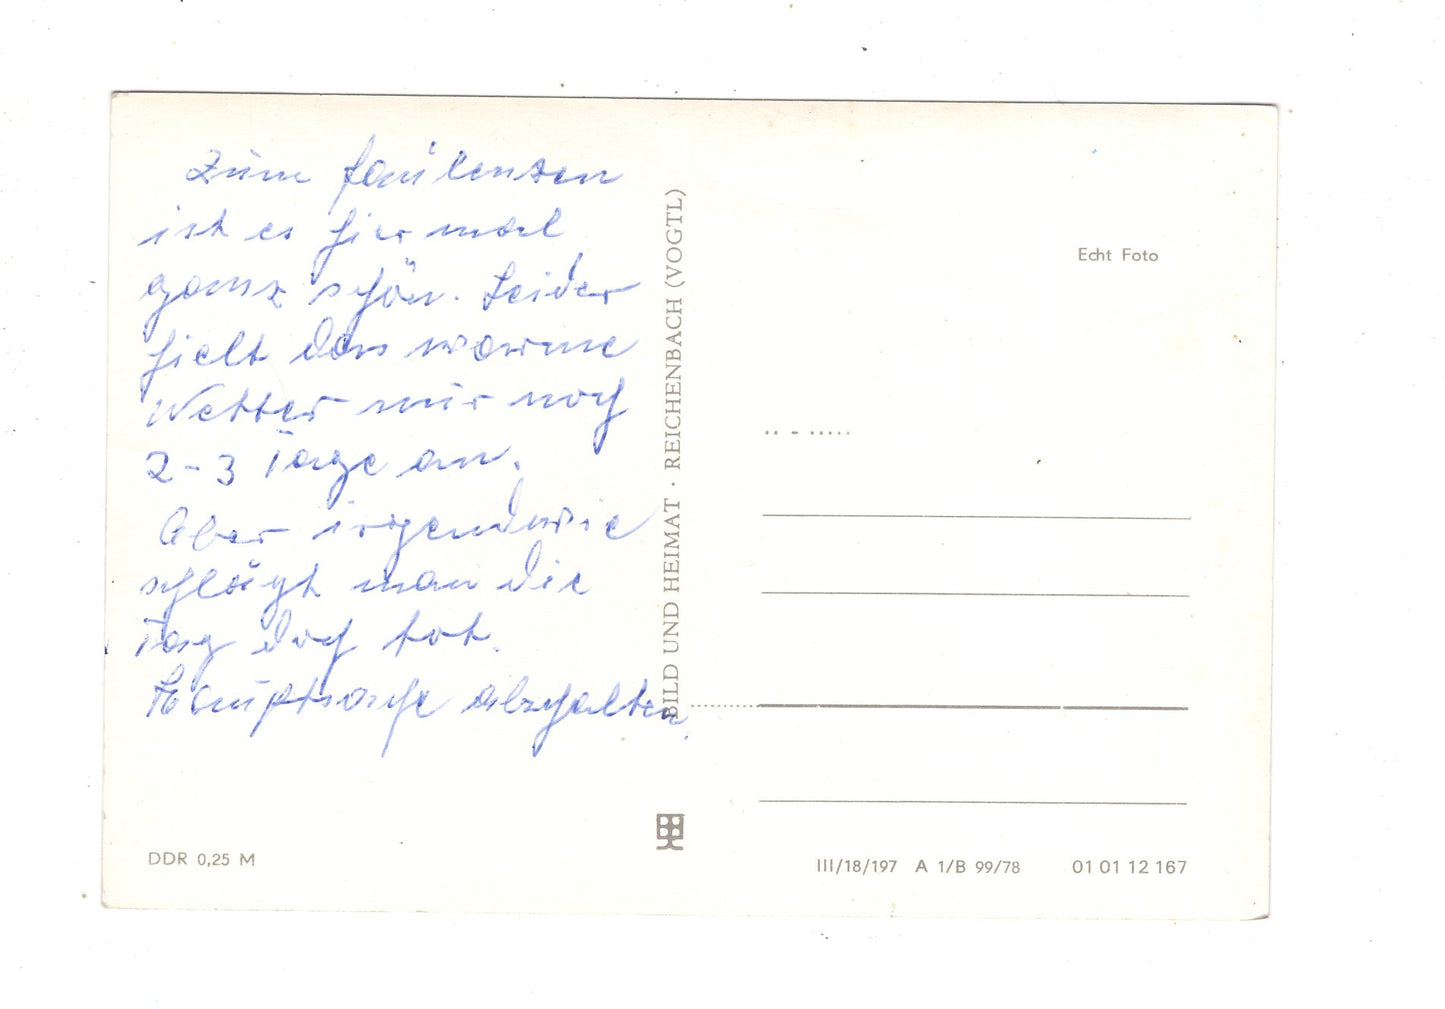 Zum faulenzen
ist es hier mal
ganz schön. Leider
hielt das warme
Wetter nur noch
2-3 Tage an.
Aber irgendwie
schlägt man die
Tag doch tot.
Hauptsache abschalten.
BILD UND HEIMAT · REICHENBACH (VOGTL)
Echt Foto
DDR 0,25 M
III/18/197 A 1/B 99/78 01 01 12 167